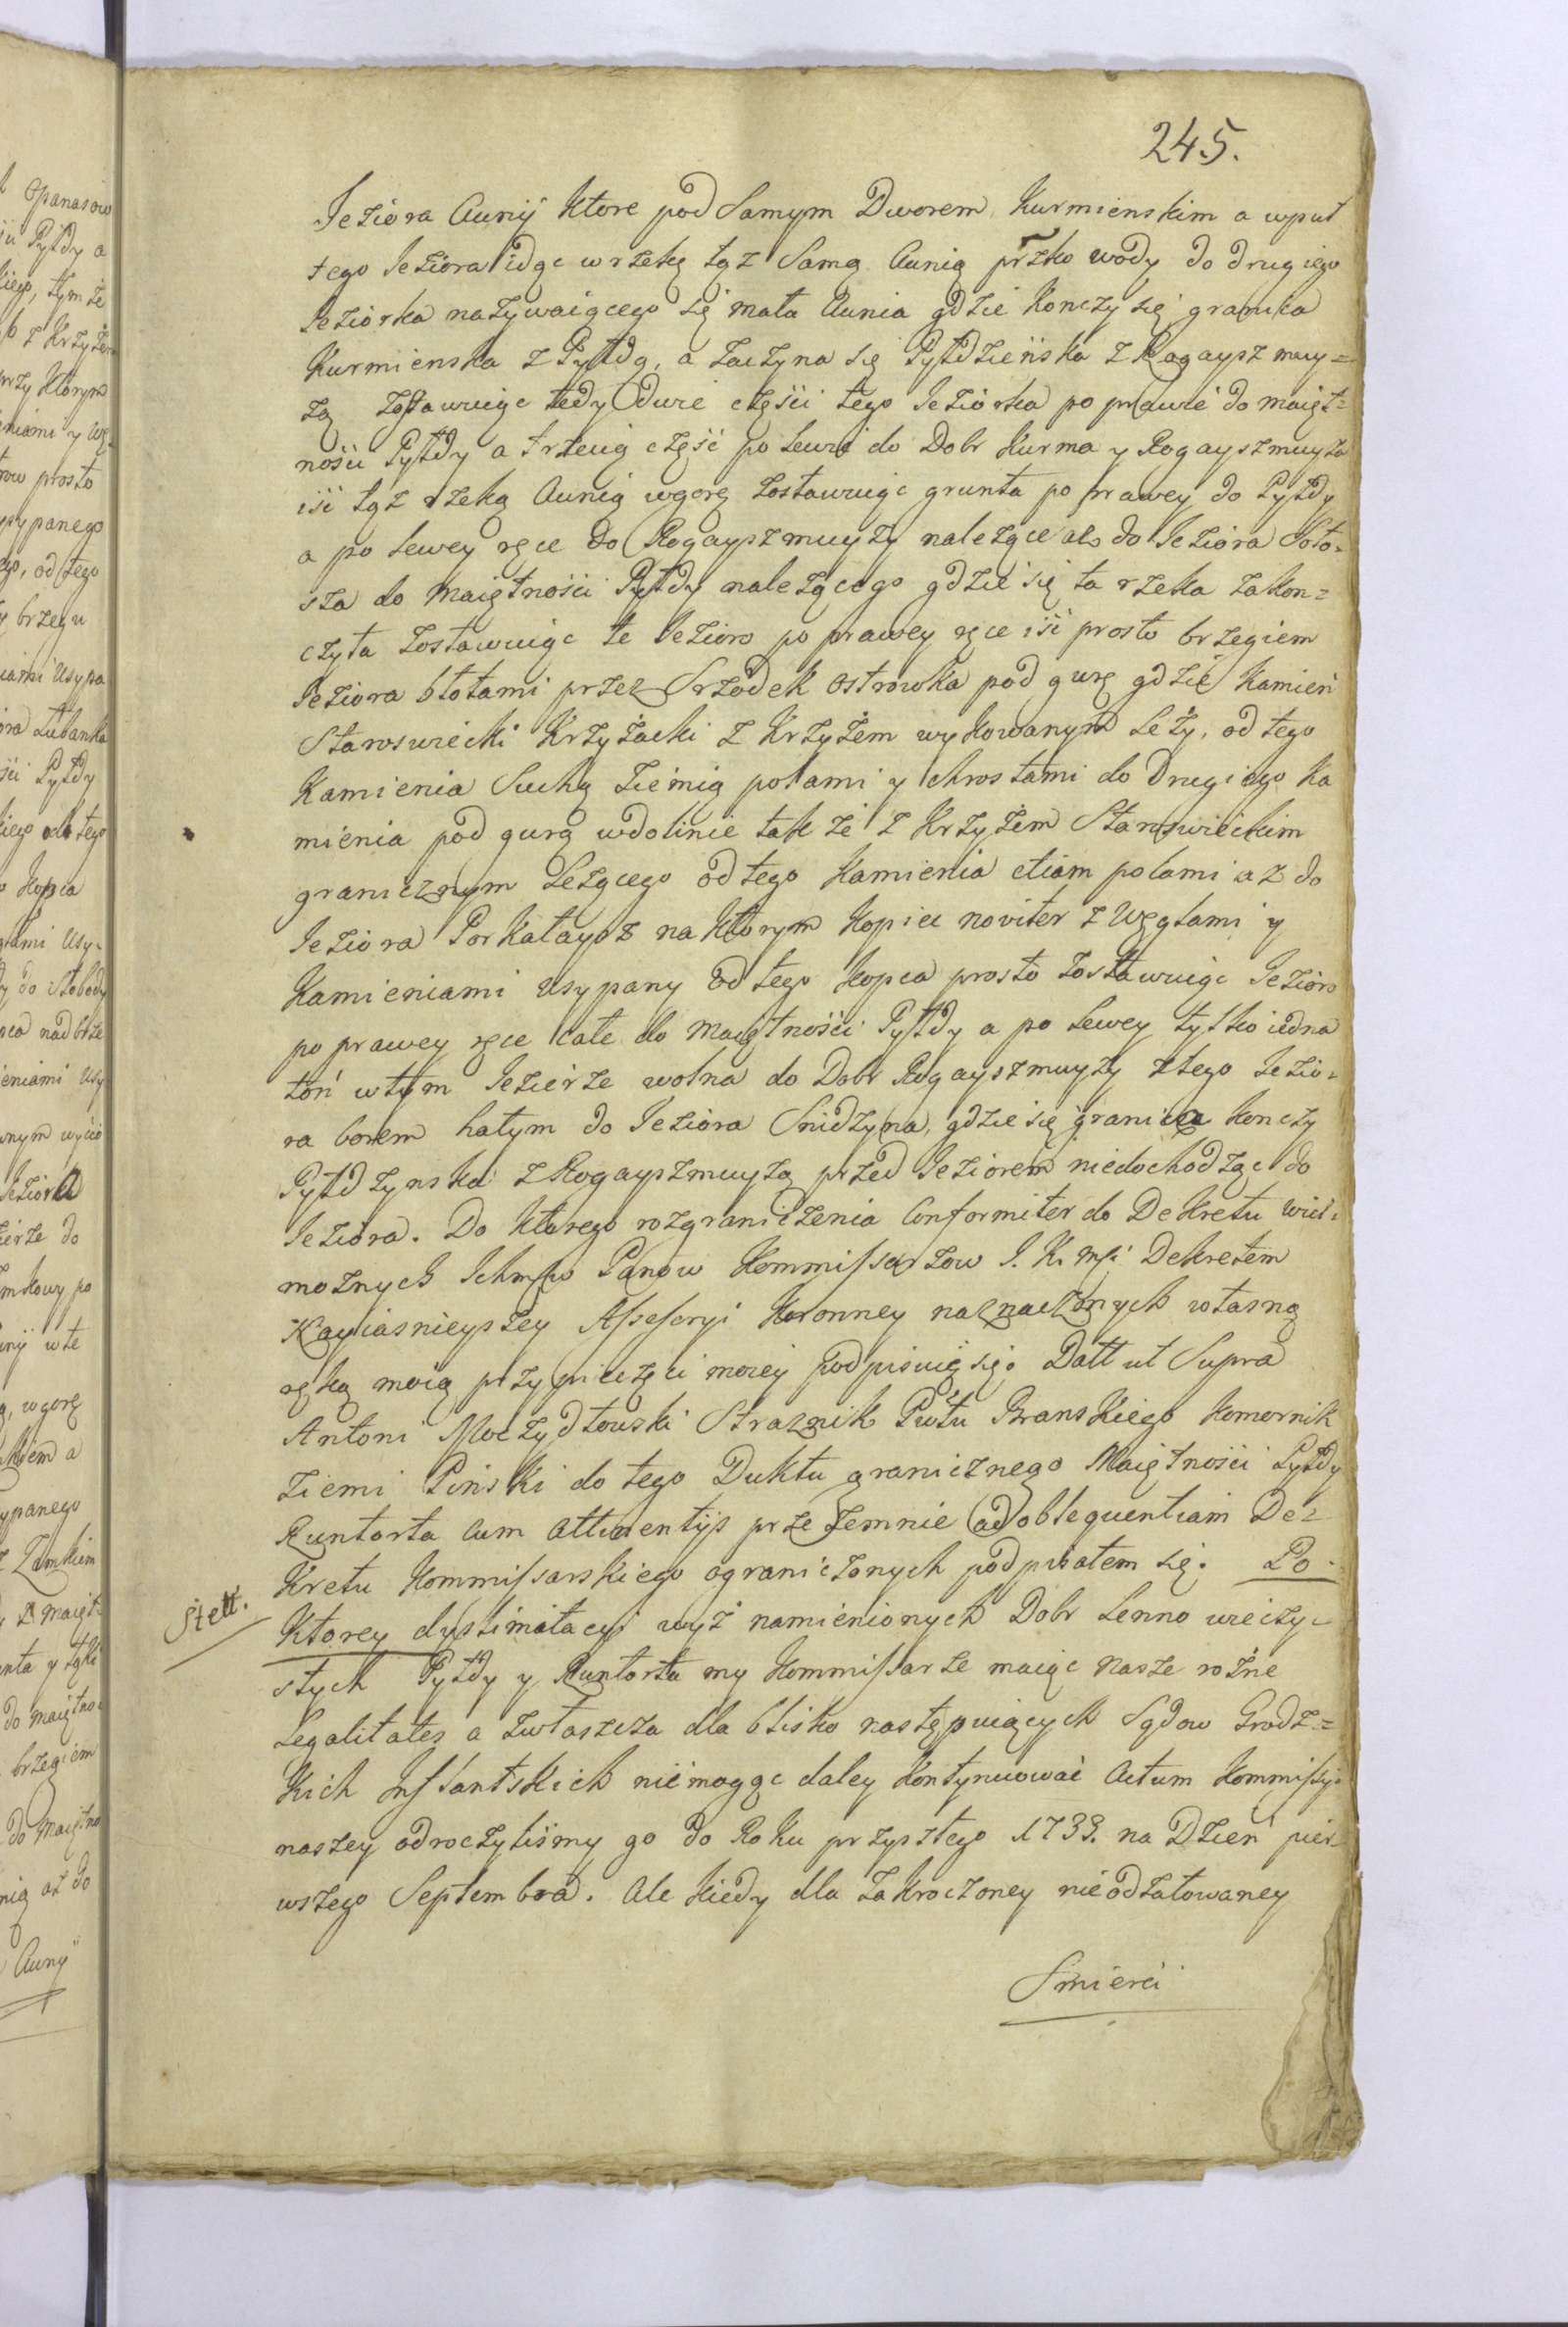 245.
Jeziora Aunij ktore pod Samym Dworem Kurmienskim a wpuł
tego Jeziora idąc w rzekę tąż Samą Aunią przko wody do drugiego
Jeziorka nazywaiącego się mała Aunia gdzie konczy się granica
Kurmienska z Pyłdą, a zaczyna się Pyłdzieńska z Rogayszmuy=
zą zostawuiąc tedy dwie częsci tego Jeziorka po prawie do maięt=
nośći Pyłdy a trzecią część po lewie do Dobr Kurma y Rogayszmuyza
iść tąż rzeką Aunią wgorę zostawuiąc grunta po prawey do Pyłdy
a po lewey ręce do Rogayszmuyzy należące aż do Jeziora Soło=
sza do maiętnośći Pyłdy należącego gdzie się ta rzeka zakon=
czyła zostawuiąc te Jezioro po prawey ręce iść prosto brzegiem
Jeziora błotami przez Srzodek ostrowka pod gurę gdzie kamień
Staroswiecki Krzyżacki z Krzyżem wykowanym leży, od tego
Kamienia Suchą ziemią polami y chrostami do Drugiego Ka
mienia pod gurą wdolinie tak że z Krzyżem Staroswieckim
granicznym leżącego od tego Kamienia etiam polami aż do
Jeziora Porkałays na ktorym kopiec noviter z Węgłami y
Kamieniami usypany od tego kopca prosto zostawuiąc Jezioro
po prawey ręce całe do maiętnośći Pyłdy a po lewey tylko iedna
toń wtym Jezierze wolna do Dobr Rogayszmuyzy z tego Jezio=
ra borem hałym do Jeziora Snidzyna, gdzie się granica konczy
Pyłdzynska z Rogayszmuyzą przed Jeziorem niedochodząc do
Jeziora. Do ktorego rozgraniczenia Conformiter do Dekretu wiel=
możnych Ichmśw Panow Kommissarzow J. K. Mści Dekretem
Nayiasnieyszey Assessoryi Koronney naznaczonych własną
ręką moią przy pieczęci moiey podpisuię się. Datt ut Supra
Antoni Moczydłowski Straznik Pwtu Branskiego Komornik
Ziemi Pinski do tego Duktu granicznego Maiętnośći Pyłdy
Runtorta cum attinentijs przezemnie ad obsequentiam De=
kretu Kommissarskiego ograniczonych podpisałem się. Po
Stett.
Ktorey dystimitacyi wyż namienionych Dobr Lenno wieczy=
stych Pyłdy y Runtorta my Kommissarze maiąc nasze rożne
Legalitates a zwłaszcza dla blisko następuiących Sądow Grodz=
kich Inflantskich niemogąc daley kontynuować Actum Kommissyi
naszey odroczyliśmy go do Roku przyszłego 1733. na Dzień pier
wszego Septembra. Ale kiedy dla zakroczoney nieodżałowaney
Smierći